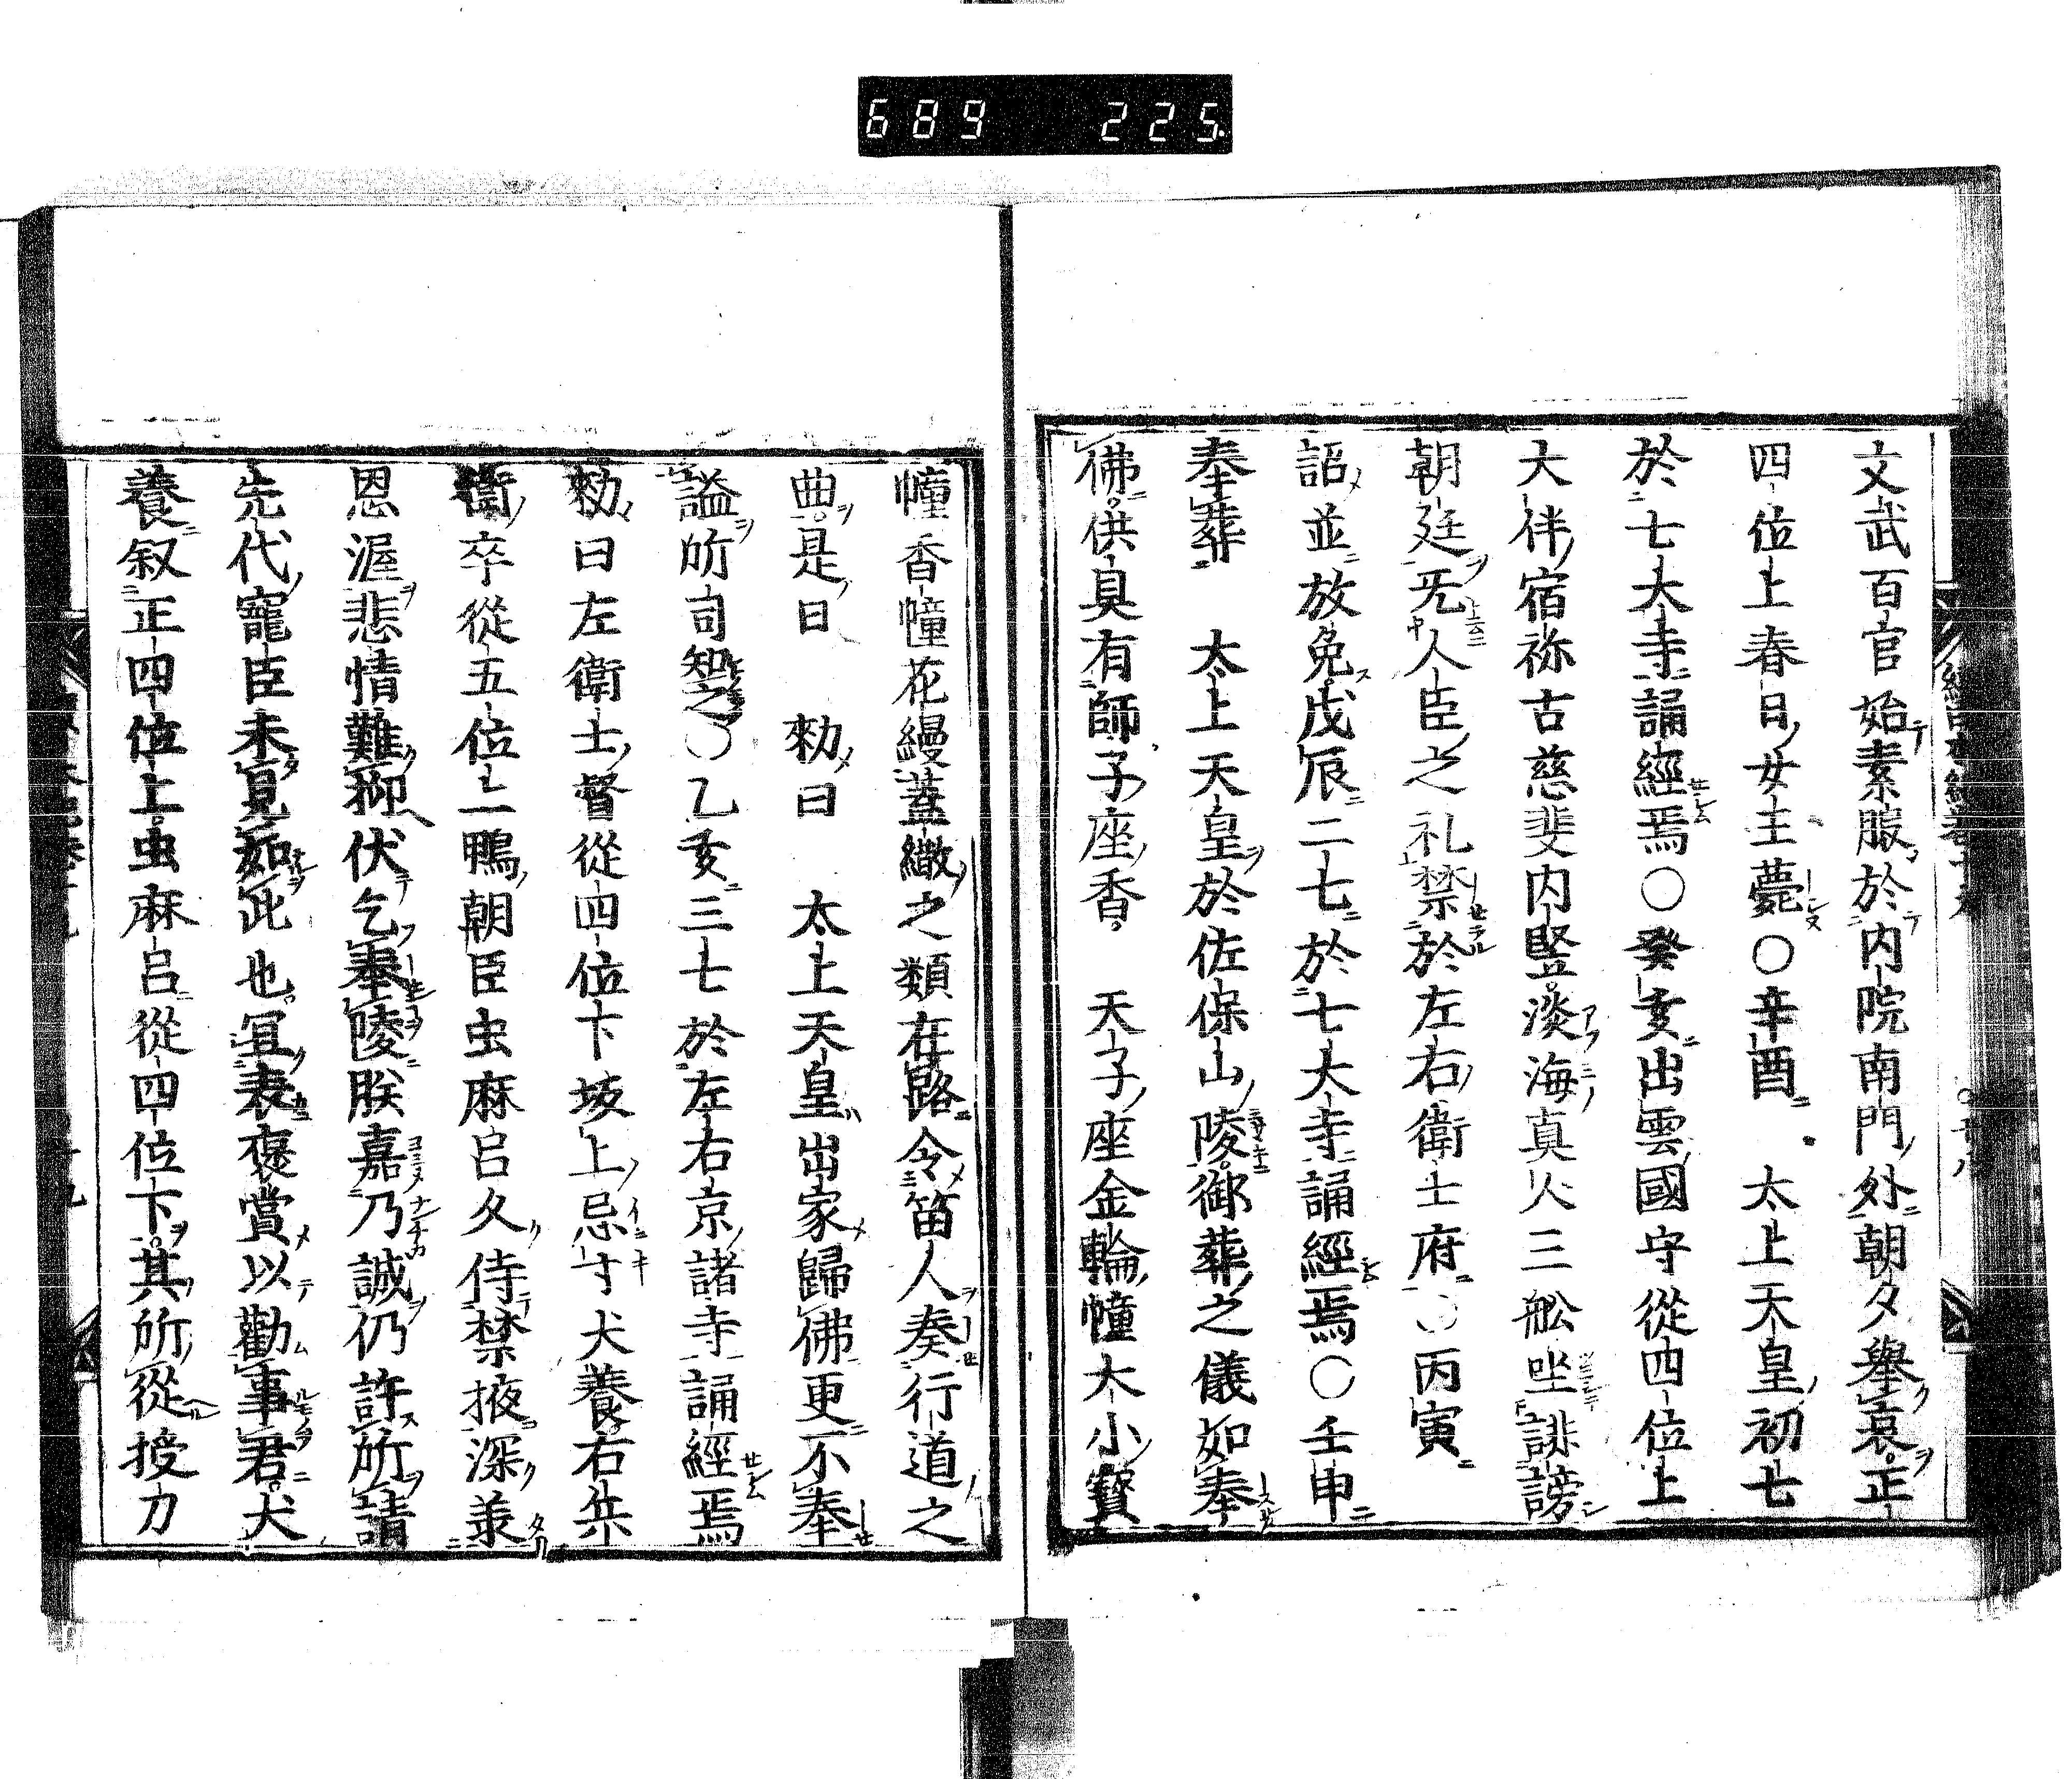 689 225
文武百官始素服於内院南門外朝夕擧哀正
四位上春日女王薨〇辛酉 太上天皇初七
於七大寺誦經焉〇癸亥出雲國守從四位上
大伴宿祢古慈斐内竪淡海真人三舩坐誹謗
朝廷无人臣之礼禁於左右衛士府〇丙寅
詔並放免戊辰二七於七大寺誦經焉〇壬申
奉葬 太上天皇於佐保山陵御葬之儀如奉
佛供具有師子座香 天子座金輪幢大小寳
幢香幢花縵蓋繖之類在路令笛人奏行道之
曲是日 勅曰 太上天皇出家歸佛更不奉
謚所司知之〇乙亥三七於左右京諸寺誦經焉
勅曰左衛士督從四位下坂上忌寸犬養右兵
衛率從五位上鴨朝臣虫麻呂久侍禁掖深羕
恩渥悲情難抑伏乞奉陵朕嘉乃誠仍許所請
先代寵臣未見如此也冝表褒賞以勸事君犬
養叙正四位上虫麻呂從四位下其所從授刀